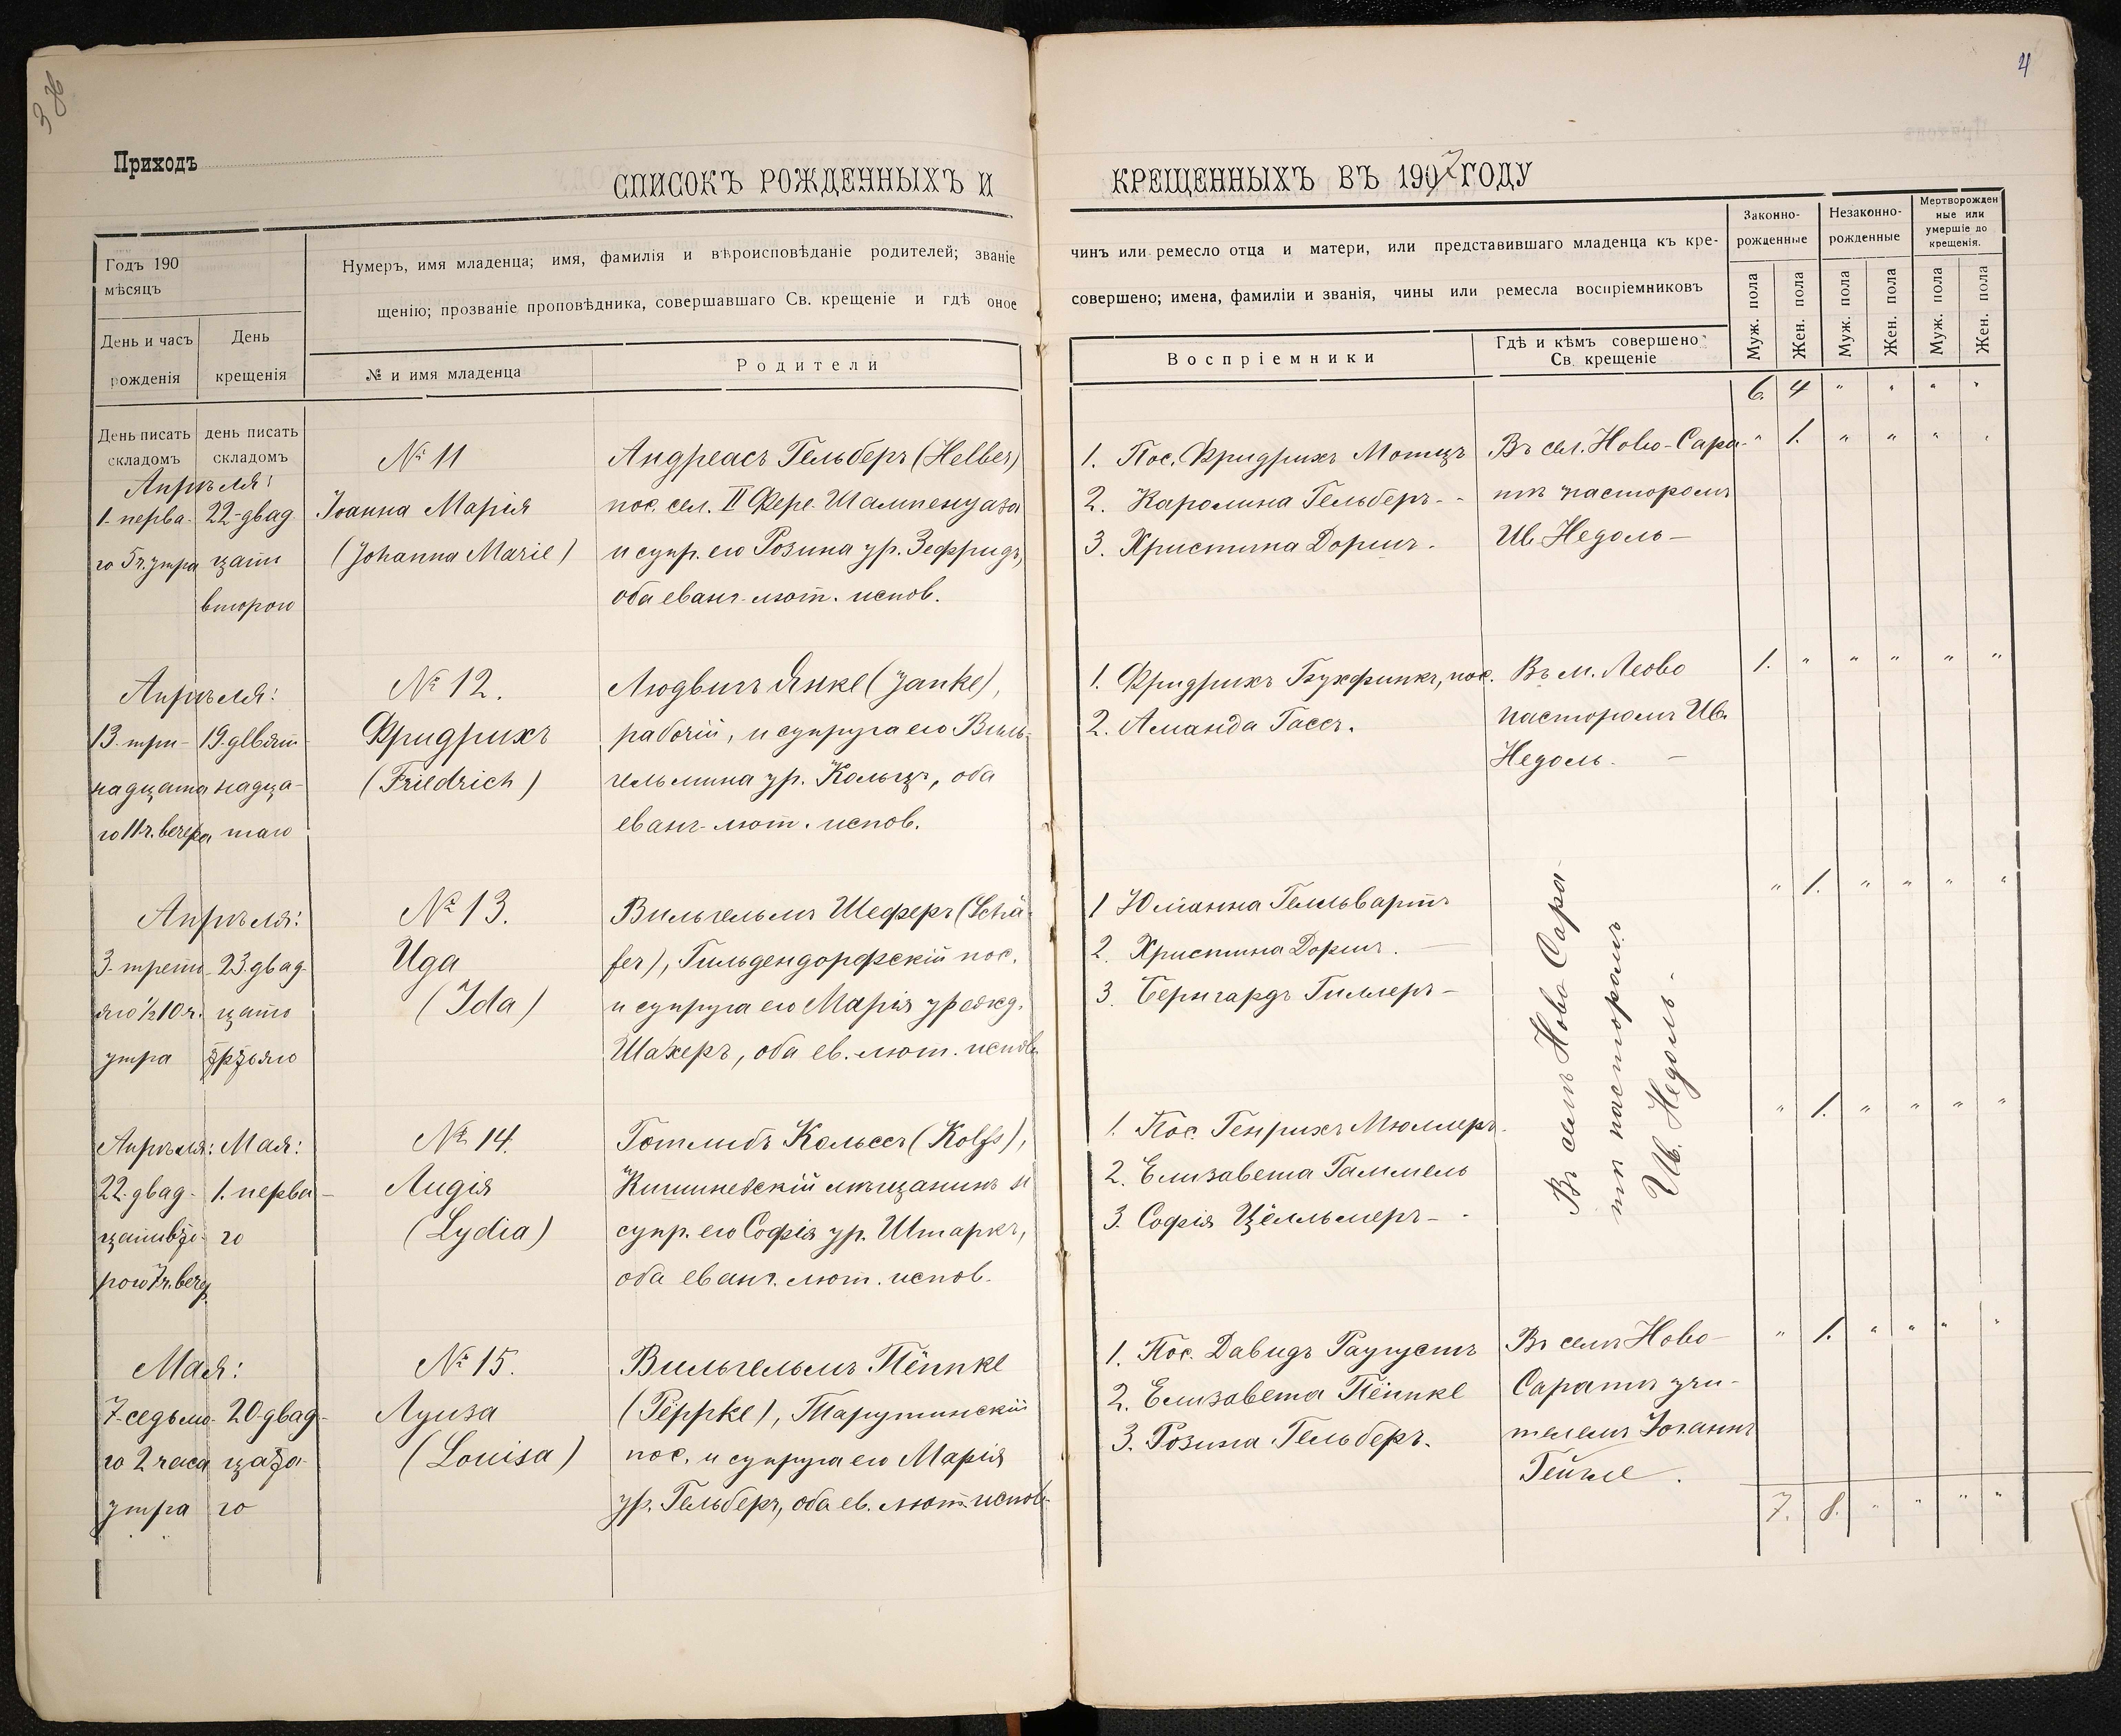 4
Приходъ
СПИСОКЪ РОЖДЕННЫХЪ И
КРЕЩЕННЫХЪ ВЪ 1907 ГОДУ
Годъ 190
мѣсяцъ
День и часъ
рожденія
День
крещенія
Нумеръ, имя младенца; имя, фамилія и вѣроисповѣданіе родителей; званіе
щенію; прозваніе проповѣдника, совершавшаго Св. крещеніе и гдѣ оное
№ и имя младенца
Родители
чинъ или ремесло отца и матери, или представившаго младенца къ кре-
совершено; имена, фамиліи и званія, чины или ремесла воспріемниковъ
Воспріемники
Гдѣ и кѣмъ совершено
Св. крещеніе
Законно-
рожденные
Незаконно-
рожденные
Мертворожден
ные или
умершіе до
крещенія.
Муж. пола
Жен. пола
Муж. пола
Жен. пола
Муж. пола
Жен. пола
6. 4 " " " "
День писать
складомъ
день писать
складомъ
Апрѣля:
1. перва-
го 5 ч. утра
22-двад
цать
второго
№ 11
Іоанна Марія
(Johanna Marie)
Андреасъ Гельберъ (Helber)
пос. сел. II Фере-Шампенуаза
и супр. его Розина ур. Зефридъ,
оба еванг-лют. испов.
1. Пос. Фридрихъ Мотцъ
2. Каролина Гельберъ -
3. Христина Доршъ.
Въ сел. Ново-Сара-
тѣ пасторомъ
Ив Недоль -
" 1. " " " "
Апрѣля:
13. три-
надцата
го 11 ч. вечера
19. девят-
надца-
таго
№ 12.
Фридрихъ
(Friedrich)
Людвигъ Янке (Janke),
рабочій, и супруга его Виль-
гельмина ур. Кольцъ, оба
еванг-лют. испов.
1. Фридрихъ Бухфинкъ, пос.
2. Аманда Гассъ.
Въ м. Леово
пасторомъ Ив.
Недоль. -
1. " " " " "
Апрѣля:
3. треть-
яго ½10 ч.
утра
23. двад-
цать
третьяго
№ 13.
Ида
(Ida)
Вильгельмъ Шеферъ (Schä-
fer), Гильдендорфскій пос.
и супруга его Марія урожд.
Шахеръ, оба ев. лют. испов.
1 Юліанна Гелльвартъ
2. Христина Доршъ. -
3. Бернгардъ Гиллеръ -
Въ селѣ Ново Сара-
тѣ пасторомъ
Ив. Недоль. -
" 1. " " " "
Апрѣля:
22. двад-
цать вто-
рого 7 ч. веч.
Мая:
1. перва-
го
№ 14.
Лидія
(Lydia)
Готлибъ Кольссъ (Kolss),
Кишиневскій мѣщанинъ и
супр. его Софія ур. Штаркъ,
оба еванг. лют. испов.
1. Пос. Генрихъ Мюллеръ.
2. Елизавета Гаммель
3. Софія Цёлльмеръ -
" 1. " " " "
Мая:
7-седьмо-
го 2 часа
утра
20-двад-
цата-
го
№ 15.
Луиза
(Louisa)
Вильгельмъ Пёппке
(Pöppke), Тарутинскій
пос. и супруга его Марія
ур. Гельберъ, оба ев. лют. испов.
1. Пос. Давидъ Раугустъ
2. Елизавета Пёппке
3. Розина Гельберъ.
Въ селѣ Ново-
Саратѣ учи-
телемъ Іоганнъ
" 1. " " " "
7. 8. " " " "